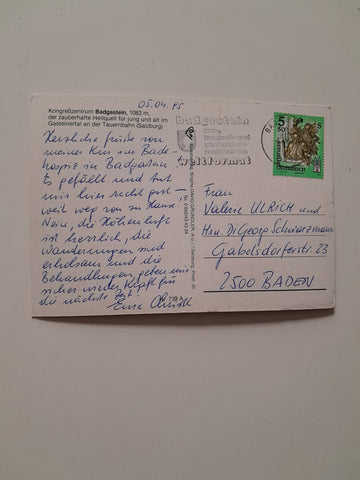 05.04.95
Kongreßzentrum Badgastein, 1083 m,
der zauberhafte Heilquell für jung und alt im
Gasteinertal an der Tauernbahn (Salzburg)
Herzliche Grüße von
meiner Kur im Bade-
hospiz in Badgastein
Es gefällt und tut
mir hier recht gut –
weit weg von zu Hause!
Nein, die Höhenluft
ist herrlich, die
Wanderungen sind
erholsam und die
Behandlungen geben mir
sicher wieder Kraft für
die nächste Zeit!
Eure
badgastein
weltformat
5
50
S
ÖSTERREICH
Frau
Valerie ULRICH und
Hrn. Di Georg Schwarzmann
Gabelsdorferstr. 23
2500 BADEN